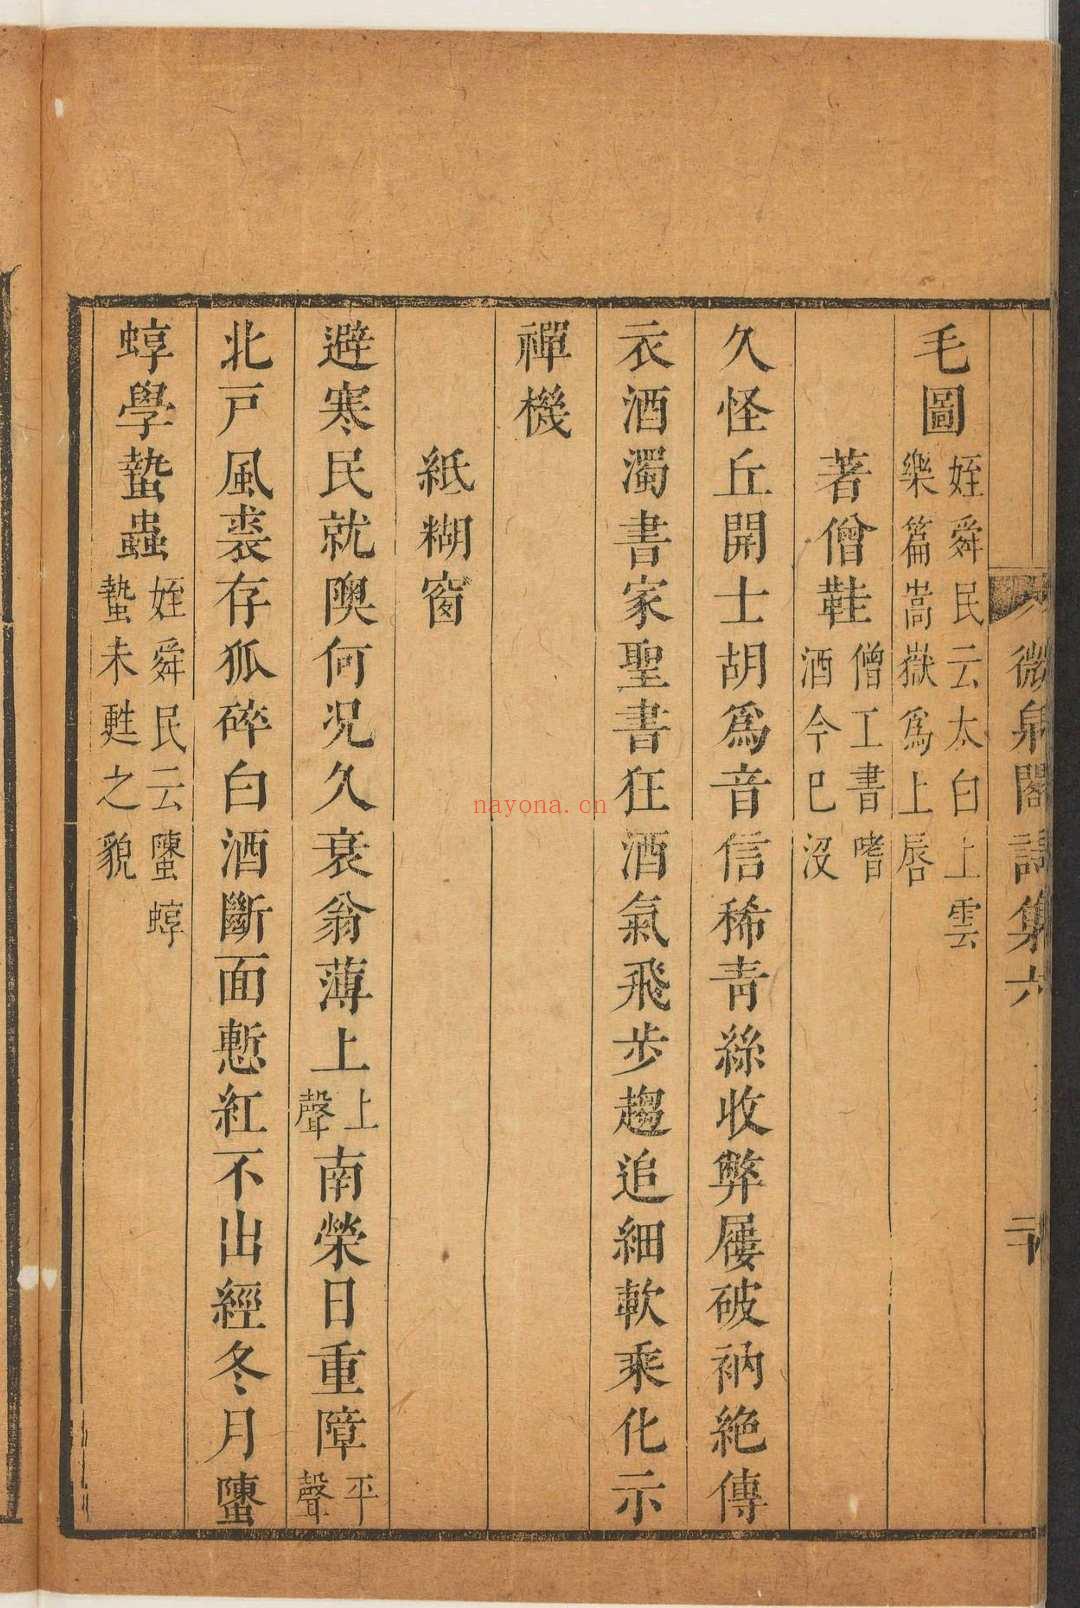 微泉閣詩集六
毛圖姪舜民云太白上雲樂篇嵩嶽爲上唇
著僧鞋僧工書嗜酒今已沒
久怪丘開士胡爲音信稀靑絲收弊屨破衲絶傳
衣酒濁書家聖書狂酒氣飛步趨追細軟乘化示
禪機
紙糊窗
避寒民就隩何況久衰翁薄上上聲南榮日重障平聲
北戸風裘存狐碎白酒斷面慙紅不出經冬月䗞
蜳學蟄蟲姪舜民云䗞蜳蟄未甦之貌
nayona.cn